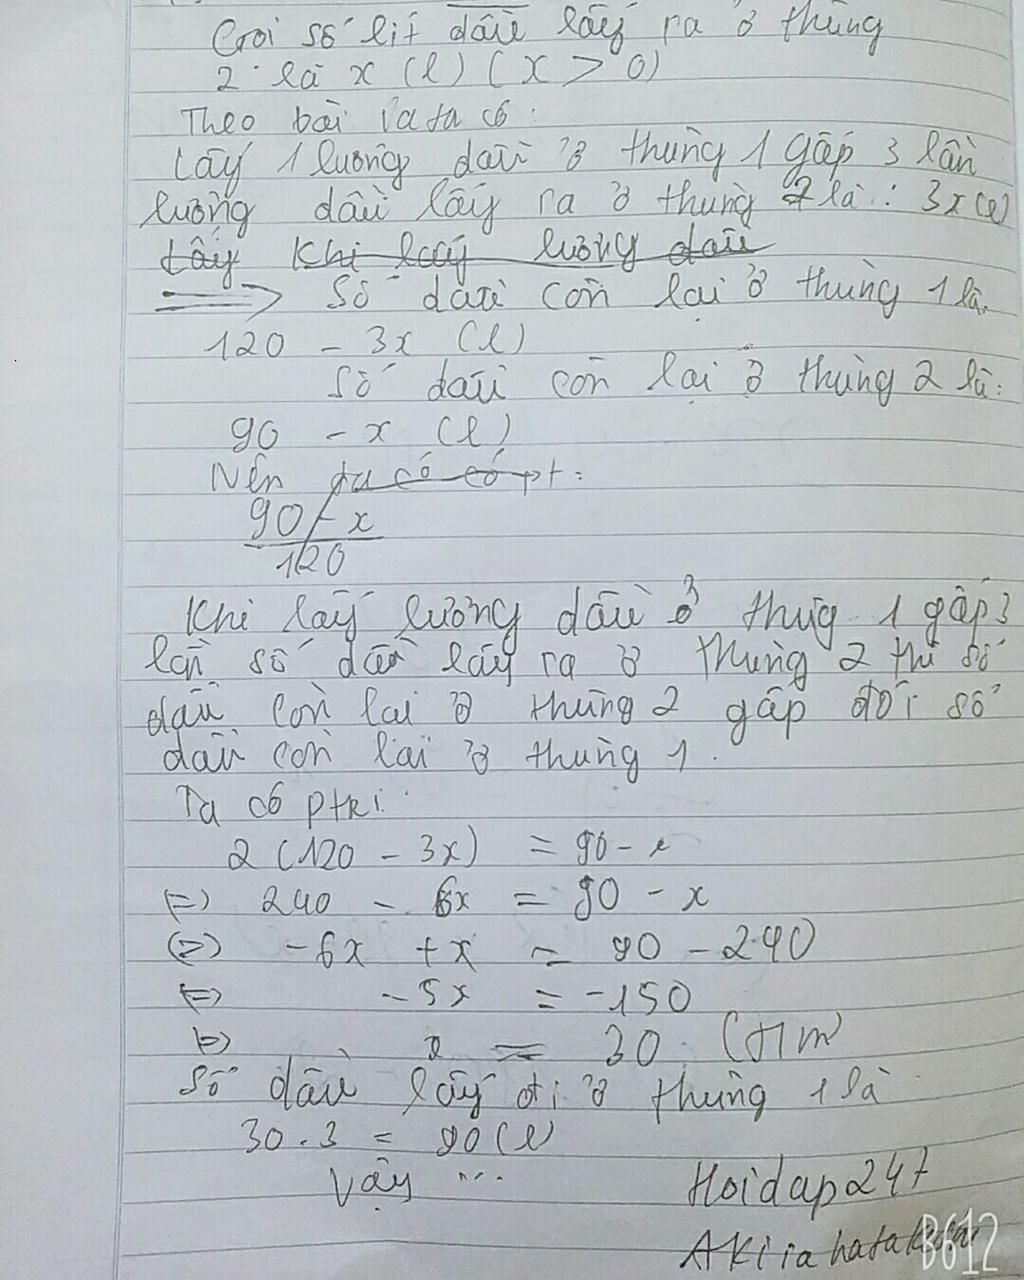 Gọi số lít dầu lấy ra ở thùng
2 là x (l) (x > 0)
Theo bài ra ta có:
Lấy 1 lượng dầu ở thùng 1 gấp 3 lần
lượng dầu lấy ra ở thùng 2 là: 3x (l)
Lấy Khi lấy lượng dầu
=> Số dầu còn lại ở thùng 1 là
120 - 3x (l)
Số dầu còn lại ở thùng 2 là:
90 - x (l)
Nên ta có có pt:
90 - x
120
Khi lấy lượng dầu ở thùg 1 gấp 3
lần số dầu lấy ra ở thùng 2 thì số
dầu còn lại ở thùng 2 gấp đôi số
dầu còn lại ở thùng 1.
Ta có ptrì:
2 (120 - 3x) = 90 - x
(=) 240 - 6x = 90 - x
(=) -6x + x = 90 - 240
(=) -5x = -150
(=) x = 30 (t/m)
Số dầu lấy đi ở thùng 1 là
30 . 3 = 90 (l)
Vậy ...
Hoidap247
Akiia
B612